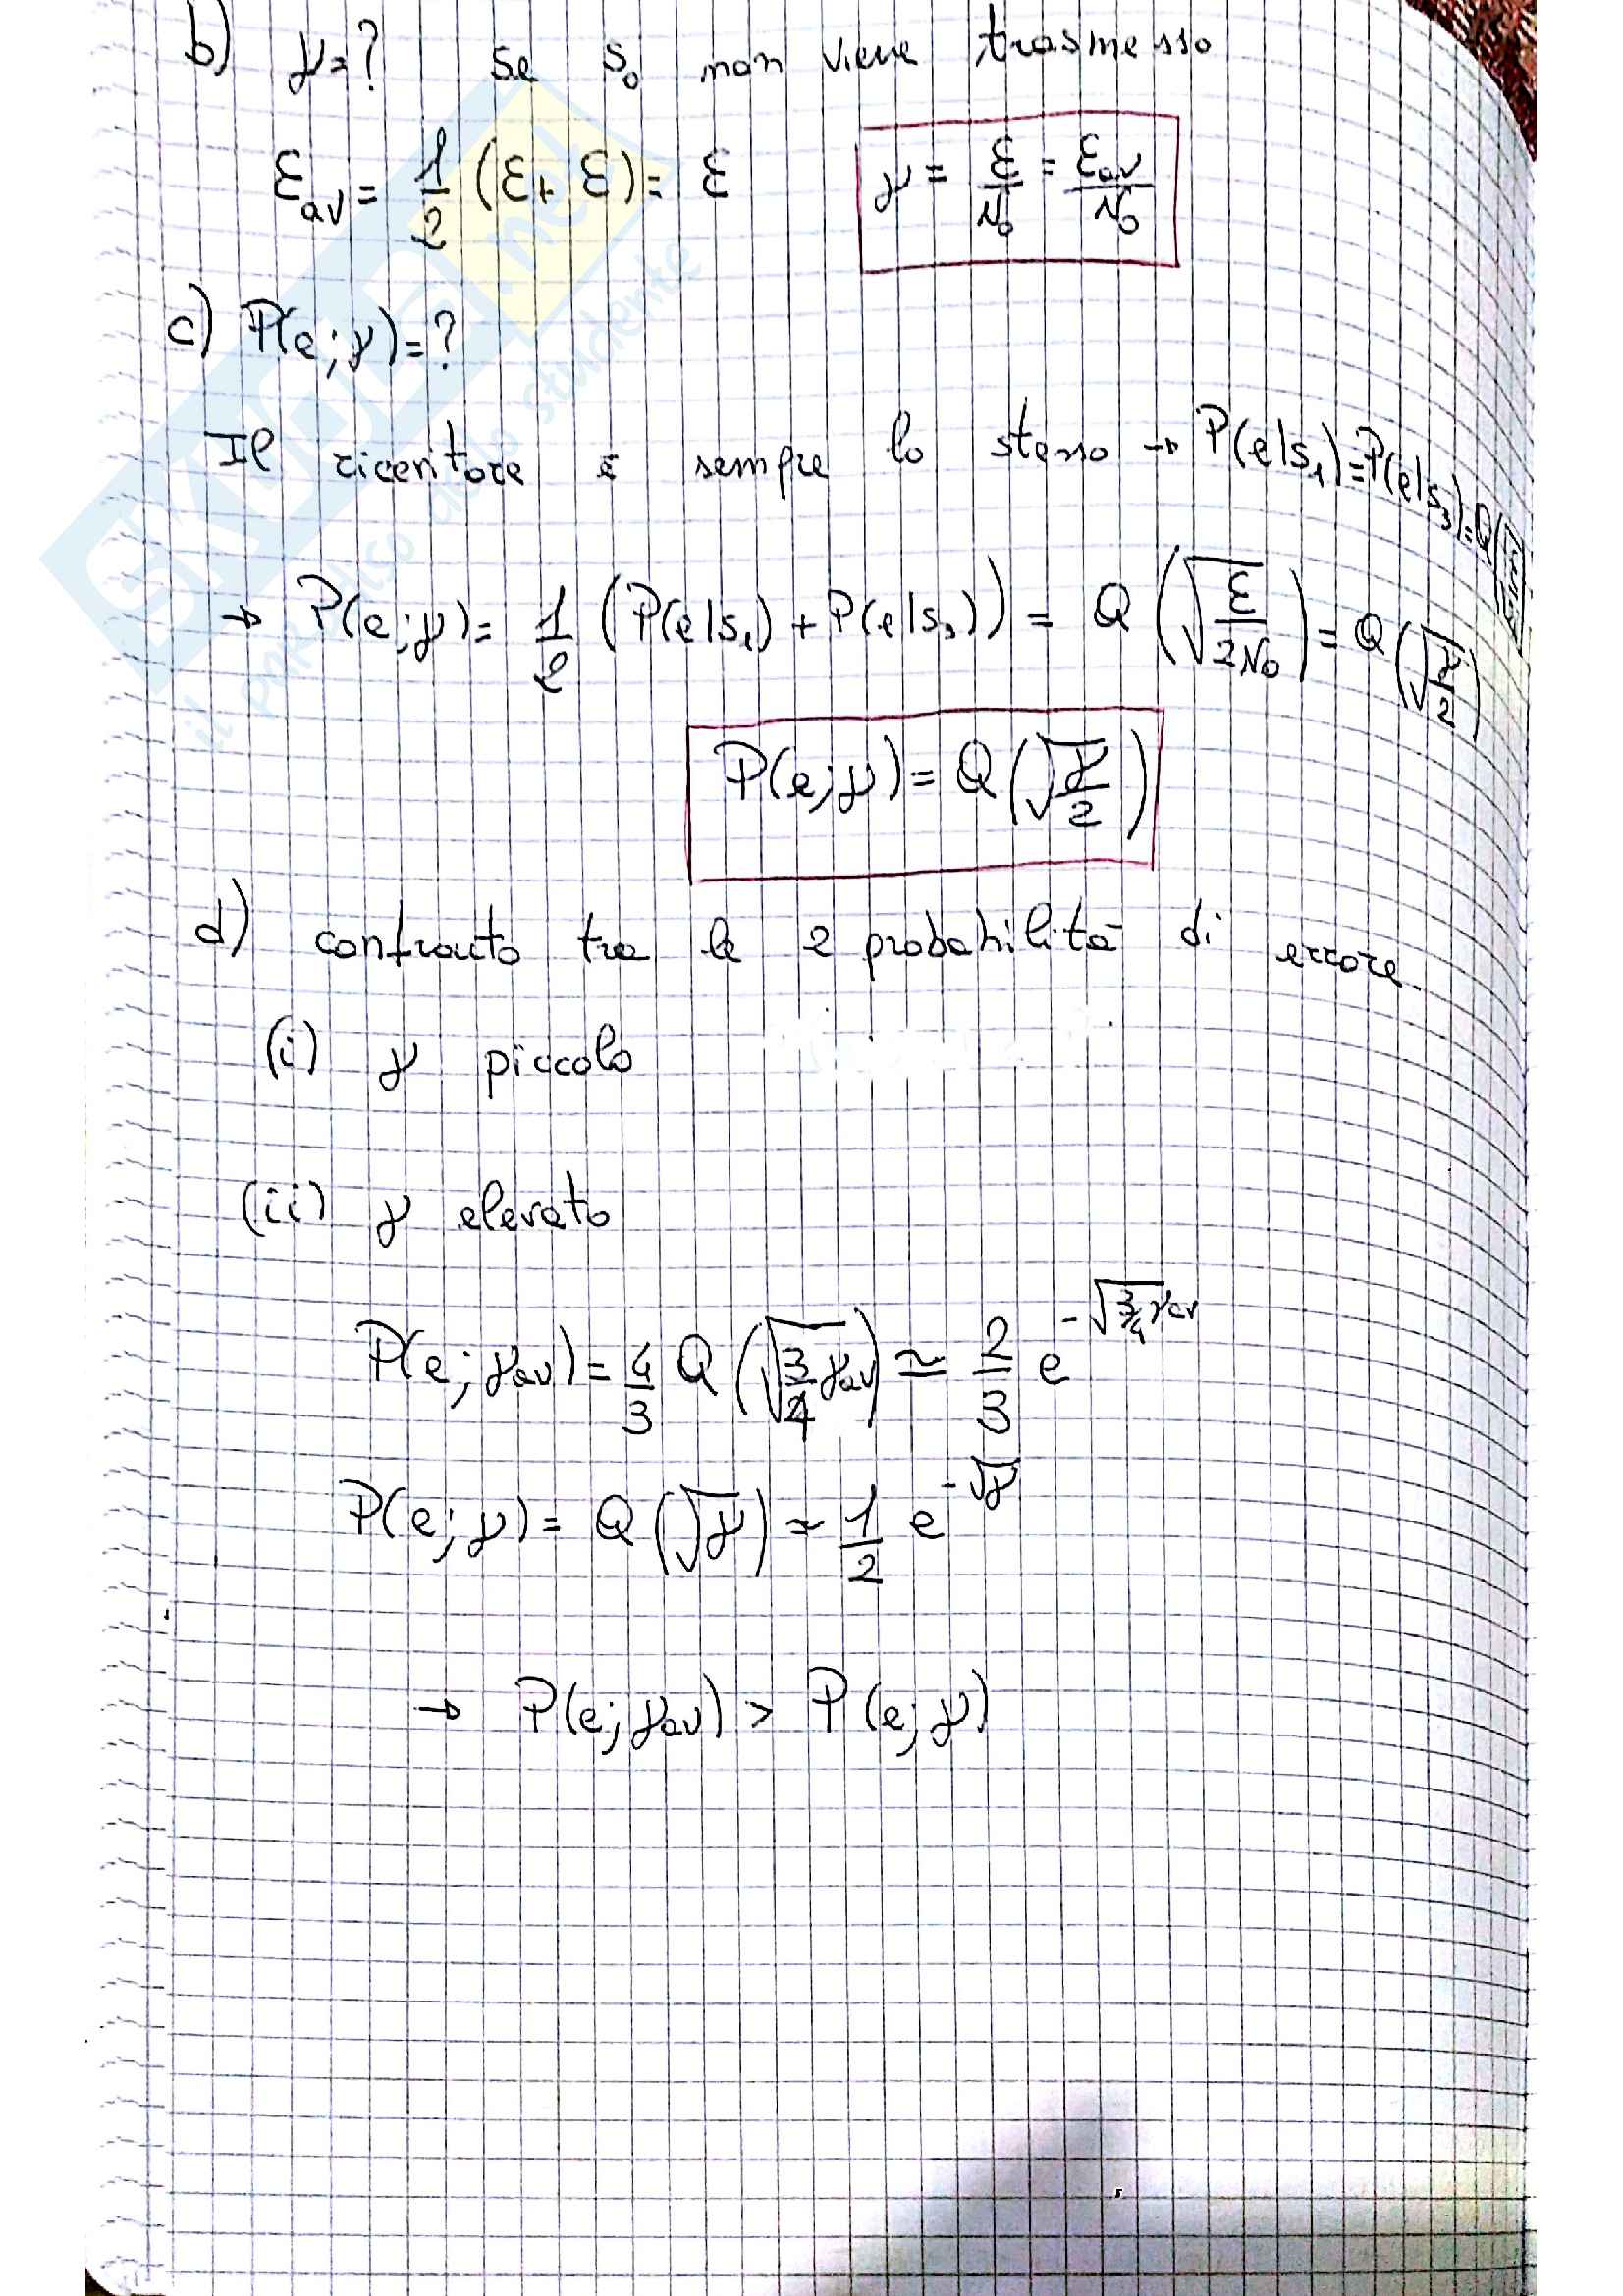 b) γ=? se s₀ non viene trasmesso
ε_av = 1/2 (ε + ε) = ε γ = ε/N₀ = ε_av/N₀
c) P(e;γ)=?
Il ricevitore è sempre lo stesso → P(e|s₁)=P(e|s₃)=Q
→ P(e;γ)= 1/2 (P(e|s₁)+P(e|s₃)) = Q(√(ε/2N₀)) = Q(√(γ/2))
P(e;γ)= Q(√(γ/2))
d) confronto tra le 2 probabilità di errore
(i) γ piccolo
(ii) γ elevato
P(e;γ_av)= 4/3 Q(√(3/4 γ_av)) ≃ 2/3 e^(-√(3/4 γ_av))
P(e;γ)= Q(√γ) ≃ 1/2 e^(-√γ)
→ P(e;γ_av) > P(e;γ)
SKUOLA.net
il paradiso dello studente